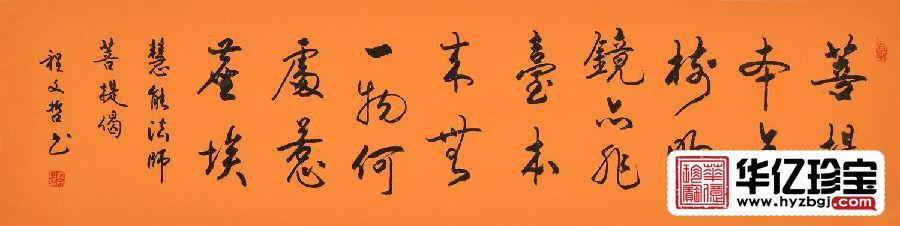 菩提
本无
樹明
鏡亦非
臺本
来無
一物何
處惹
塵埃
慧能法師
菩提偈
程文哲书
华亿珍宝
www.hyzbgj.com